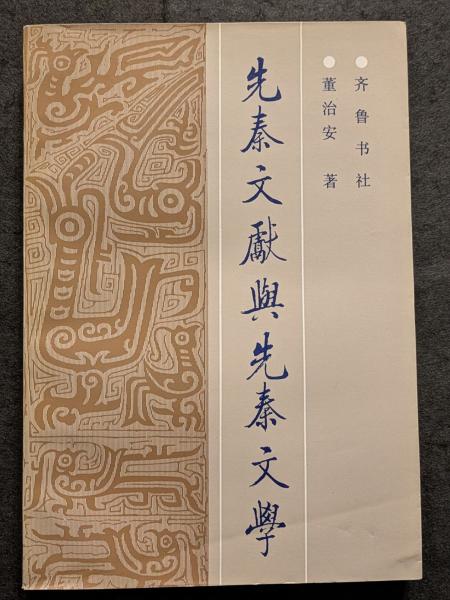 齐鲁书社
董治安 著
先秦文獻與先秦文學